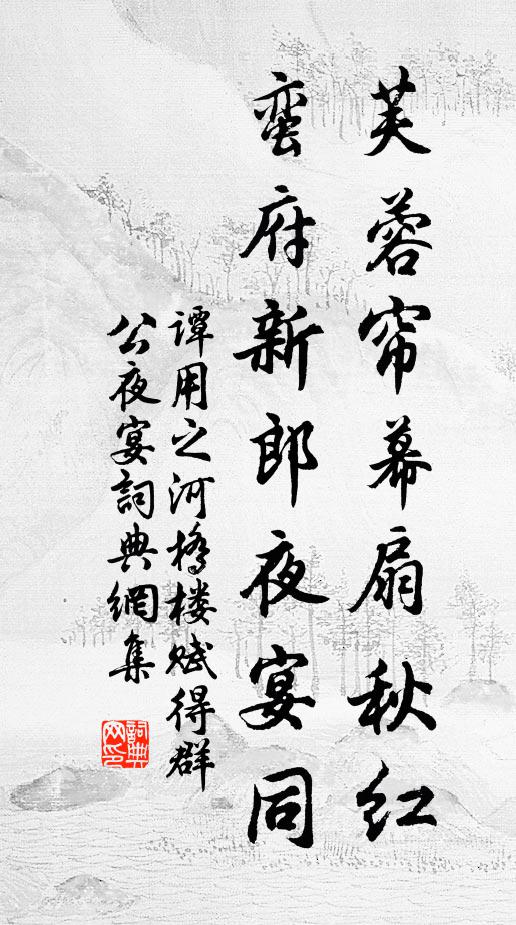 芙蓉帘幕扇秋红
蛮府新郎夜宴同
谭用之河桥楼赋得群
公夜宴词典網集
詞典網印